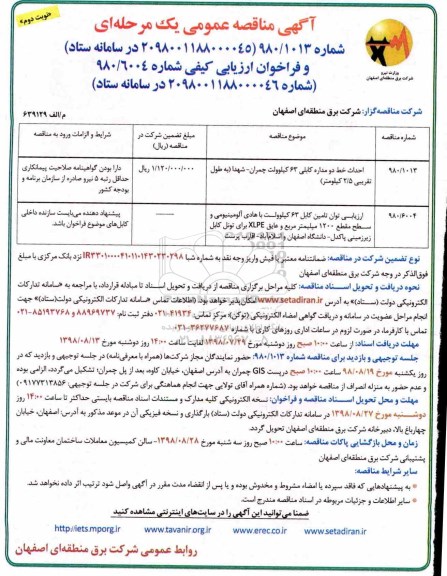 «نوبت دوم»
آگهی مناقصه عمومی یک مرحله‌ای
شماره ۹۸۰/۱۰۱۳ (۲۰۹۸۰۰۱۱۸۸۰۰۰۰۴۵ در سامانه ستاد)
و فراخوان ارزیابی کیفی شماره ۹۸۰/۶۰۰۴
(شماره ۲۰۹۸۰۰۱۱۸۸۰۰۰۰۴۶ در سامانه ستاد)
وزارت نیرو
شرکت برق منطقه‌ای اصفهان
شرکت مناقصه‌گزار: شرکت برق منطقه‌ای اصفهان
م/الف ۶۳۹۱۲۹
شماره مناقصه
موضوع مناقصه
مبلغ تضمین شرکت در مناقصه (ریال)
شرایط و الزامات ورود به مناقصه
۹۸۰/۱۰۱۳
احداث خط دو مداره کابلی ۶۳ کیلوولت چمران- شهدا (به طول تقریبی ۲/۵ کیلومتر)
۱/۱۲۰/۰۰۰/۰۰۰ ریال
دارا بودن گواهینامه صلاحیت پیمانکاری حداقل رتبه ۵ نیرو صادره از سازمان برنامه و بودجه کشور
۹۸۰/۶۰۰۴
ارزیابی توان تامین کابل ۶۳ کیلوولت با هادی آلومینیومی و سطح مقطع ۱۲۰۰ میلیمتر مربع و عایق XLPE برای تونل کابل زیرزمینی پاکدل- دانشگاه اصفهان و اسلام‌آباد-
پیشنهاد دهنده می‌بایست سازنده داخلی کابل‌های موضوع فراخوان باشد.
نوع تضمین شرکت در مناقصه: ضمانتنامه معتبر یا فیش واریز وجه نقد به شماره شبا IR۳۳۰۱۰۰۰۰۴۱۰۱۱۰۱۴۳۰۲۳۰۲۹۸ نزد بانک مرکزی با مبلغ
فوق‌الذکر در وجه شرکت برق منطقه‌ای اصفهان
نحوه دریافت و تحویل اسناد مناقصه: کلیه مراحل برگزاری مناقصه از دریافت و تحویل اسناد تا مبادله قرارداد، با مراجعه به «سامانه تدارکات
الکترونیکی دولت (ستاد)» به آدرس www.setadiran.ir امکان‌پذیر خواهد بود. (اطلاعات تماس «سامانه تدارکات الکترونیکی دولت(ستاد)» جهت
انجام مراحل عضویت در سامانه و دریافت گواهی امضاء الکترونیکی (توکن): مرکز تماس ۴۱۹۳۴-۰۲۱ دفتر ثبت نام ۸۸۹۶۹۷۳۷ و ۸۵۱۹۳۷۶۸-۰۲۱
تماس با کارفرما، در صورت لزوم در ساعات اداری روزهای کاری با شماره ۳۶۲۷۷۶۸۷-۰۳۱
مهلت دریافت اسناد: از ساعت ۱۰:۰۰ صبح روز دوشنبه مورخ ۱۳۹۸/۰۷/۲۹ لغایت ساعت ۱۴:۰۰ روز دوشنبه مورخ ۱۳۹۸/۰۸/۱۳
جلسه توجیهی و بازدید برای مناقصه شماره ۹۸۰/۱۰۱۳: حضور نمایندگان مجاز شرکت‌ها (همراه با معرفی‌نامه) در جلسه توجیهی و بازدید که در
روز یکشنبه مورخ ۹۸/۰۸/۱۹ ساعت ۱۰:۰۰ صبح درپست GIS چمران به آدرس اصفهان، خیابان کاوه، بعد از پل چمران؛ تشکیل می‌گردد، الزامی بوده
و عدم حضور به منزله انصراف از مناقصه خواهد بود. (شماره همراه آقای تولایی جهت انجام هماهنگی برای شرکت در جلسه توجیهی: ۰۹۱۷۷۳۱۳۸۵۶)
مهلت و محل تحویل اسناد مناقصه و فراخوان: نسخه الکترونیکی کلیه مدارک و مستندات اسناد مناقصه بایستی حداکثر تا ساعت ۱۴:۰۰ روز
دوشنبه مورخ ۱۳۹۸/۰۸/۲۷ در سامانه تدارکات الکترونیکی دولت (ستاد) بارگذاری و نسخه فیزیکی آن در موعد مذکور به آدرس: اصفهان، خیابان
چهارباغ بالا، دبیرخانه شرکت برق منطقه‌ای اصفهان تحویل گردد.
زمان و محل بازگشایی پاکات مناقصه: ساعت ۱۰:۰۰ صبح روز سه شنبه مورخ ۱۳۹۸/۰۸/۲۸- سالن کمیسیون معاملات ساختمان معاونت مالی و
پشتیبانی شرکت برق منطقه‌ای اصفهان
سایر شرایط مناقصه:
- به پیشنهادهایی که فاقد سپرده یا امضاء مشروط و مخدوش بوده و یا پس از انقضاء مدت مقرر در آگهی واصل شود ترتیب اثر داده نخواهد شد.
- سایر اطلاعات و جزئیات مربوطه در اسناد مناقصه مندرج است.
ضمنا می‌توانید این آگهی را در سایت‌های اینترنتی مشاهده کنید
http://iets.mporg.ir www.tavanir.org.ir www.erec.co.ir www.setadiran.ir
روابط عمومی شرکت برق منطقه‌ای اصفهان